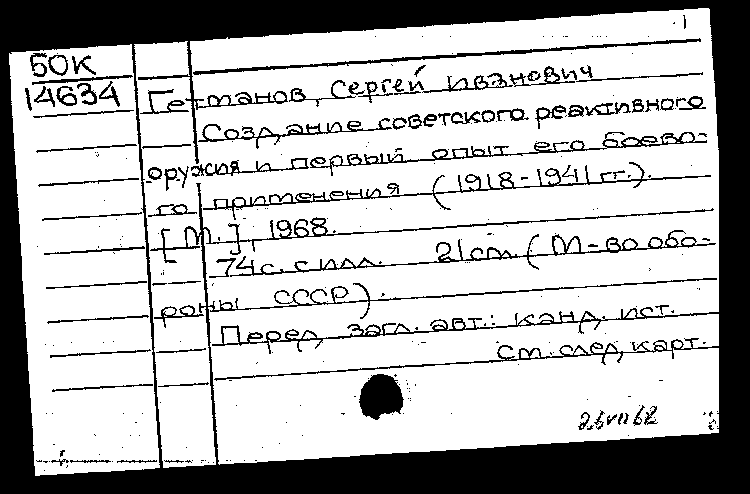 БОК
14634
Гетманов, Сергей Иванович
Создание советского реактивного
оружия и первый опыт его боево-
го применения (1918-1941 гг.).
[М.], 1968.
74 с. с илл. 21 см. (М-во обо-
роны СССР).
Перед загл. авт.: канд. ист.
См. след. карт.